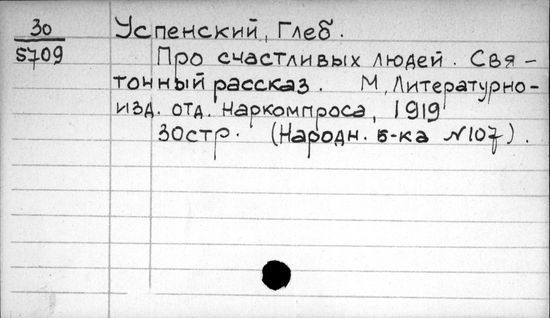 30
5709
Успенский, Глеб.
Про счастливых людей. Свя-
тонный рассказ. М, Литературно-
изд. отд. наркомпроса, 1919
30стр. (Народн. б-ка №107).